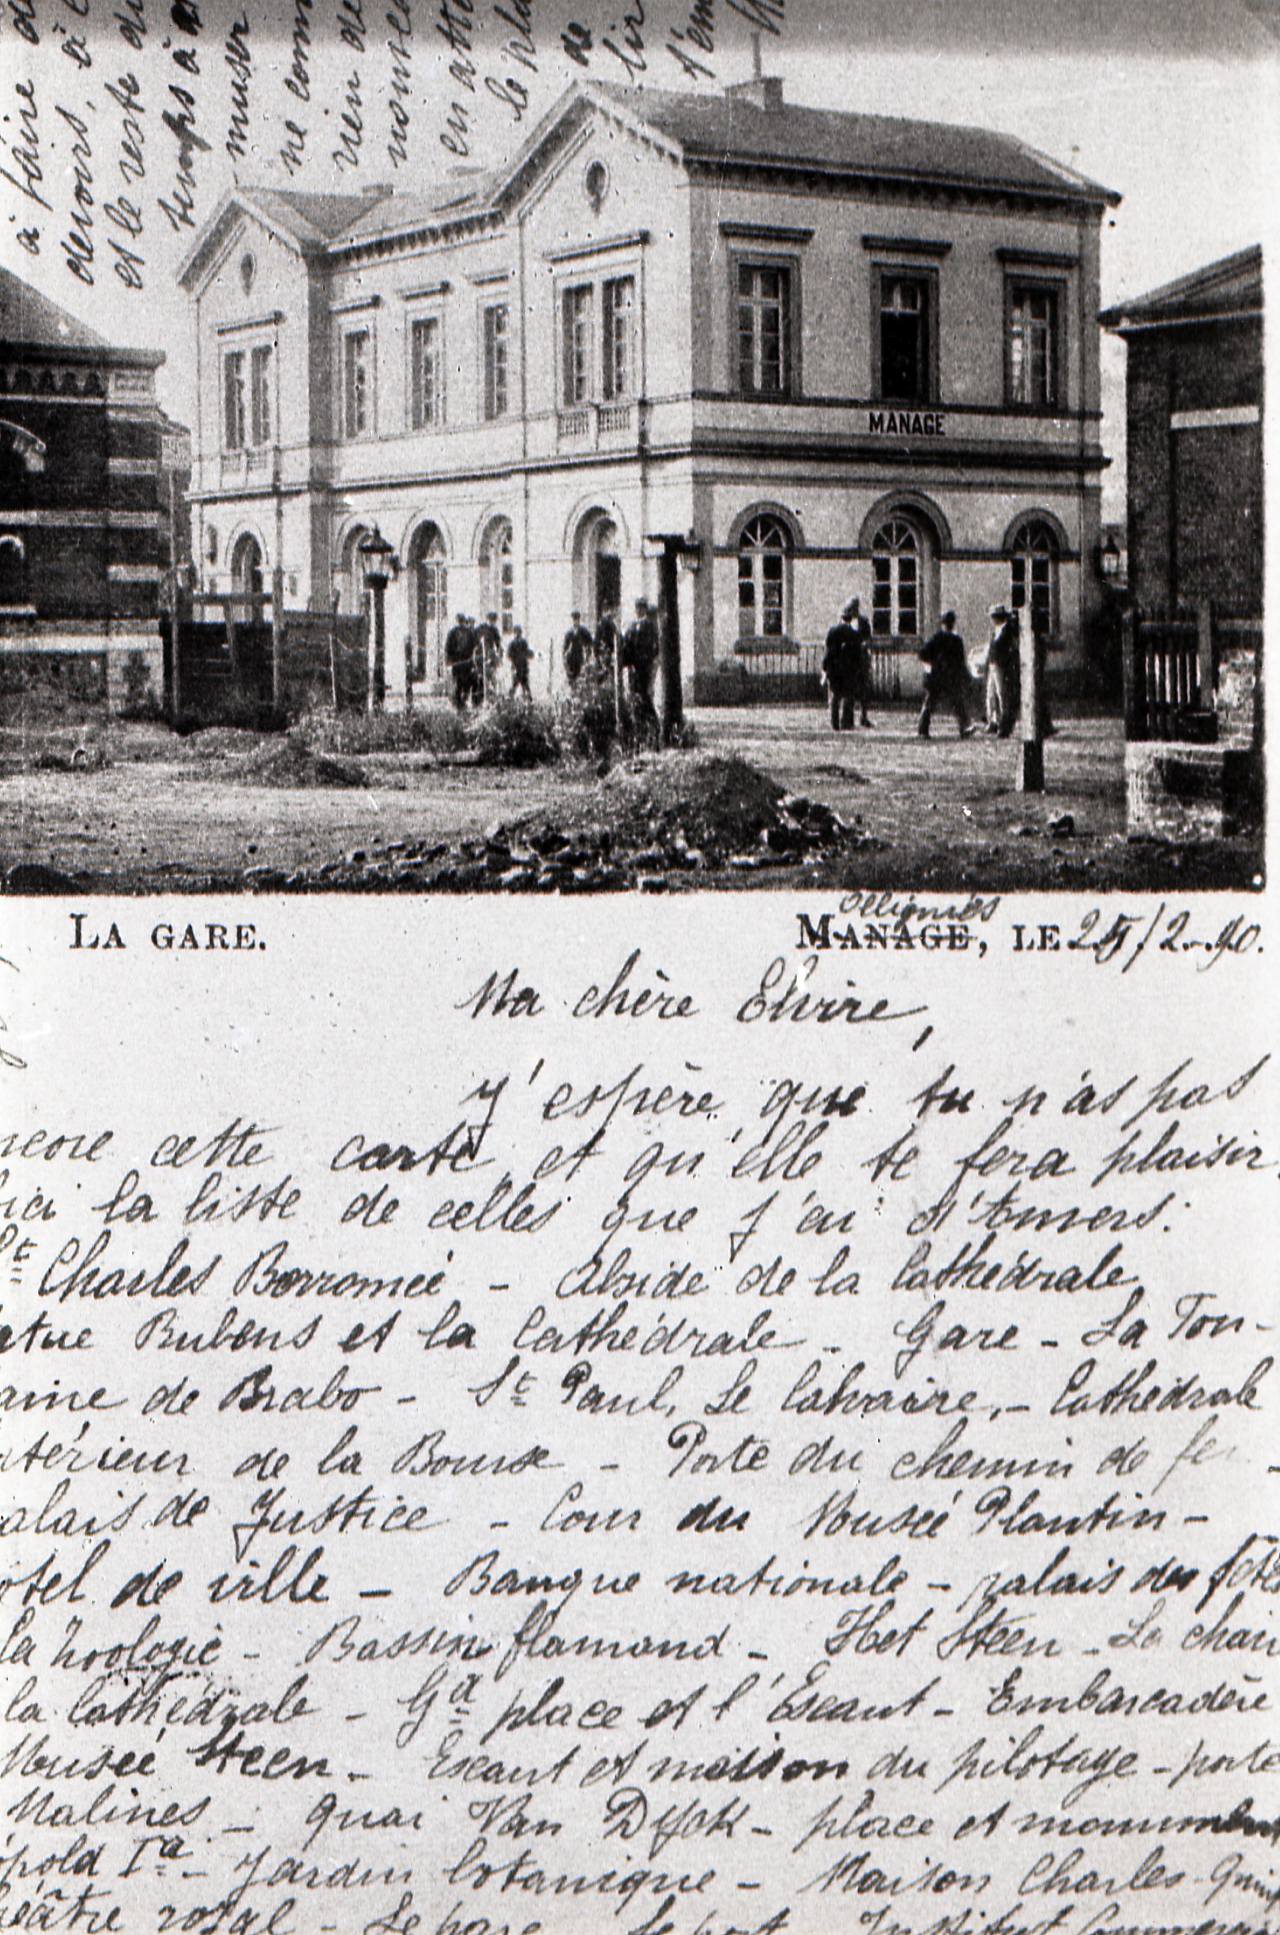 à faire de
devoirs, à l
et le reste du
temps à m
muser
ne comm
rien de
nouvea
en atte
le pla
de
lir
t'em
MANAGE
LA GARE.
Ollignies
MANAGE, LE 25/2-90.
Ma chère Elvire,
J'espère que tu n'as pas
ncore cette carte, et qu'elle te fera plaisir.
ici la liste de celles que j'ai d'Anvers:
St Charles Borromée - Abside de la Cathédrale
atue Rubens et la Cathédrale - Gare - La Fon-
aine de Brabo - St Paul, Le Calvaire, - Cathédrale
ntérieur de la Bourse - Porte du chemin de fer -
alais de Justice - Cour du Musée Plantin -
otel de ville - Banque nationale - palais des fêtes
la Zoologie - Bassin flamand - Het Steen - La chair
la Cathédrale - Gd place et l'Escaut - Embarcadère
Musée Steen - Escaut et maison du pilotage - porte
Malines - Quai Van Dyck - place et monument
opold Ier - Jardin botanique - Maison Charles-Quint
héâtre royal - Le parc - Le port - Institut Commercia